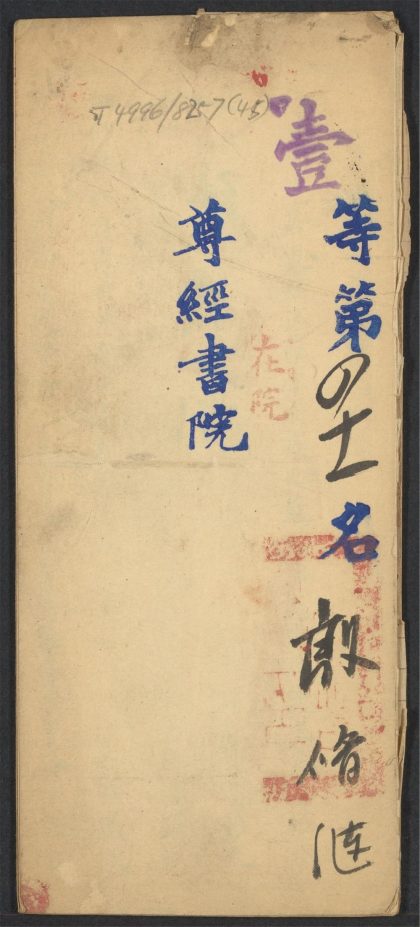 T 4996/8257(45)
壹等第四十一名 脩漣
在院
尊經書院